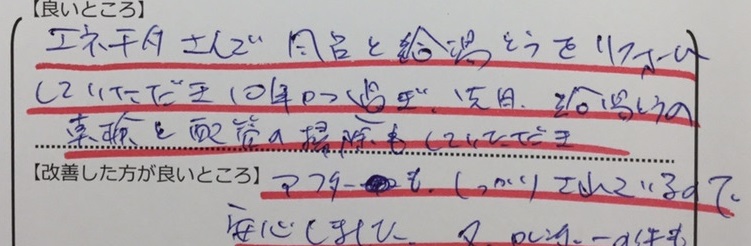 【良いところ】
エネチタさんで 風呂と給湯とうをリフォーム
していただき 10年かっ過ぎ、先日、給湯とうの
点検と配管の掃除もしていただき
【改善した方が良いところ】アフターも、しっかりされているので、
安心しました。又、